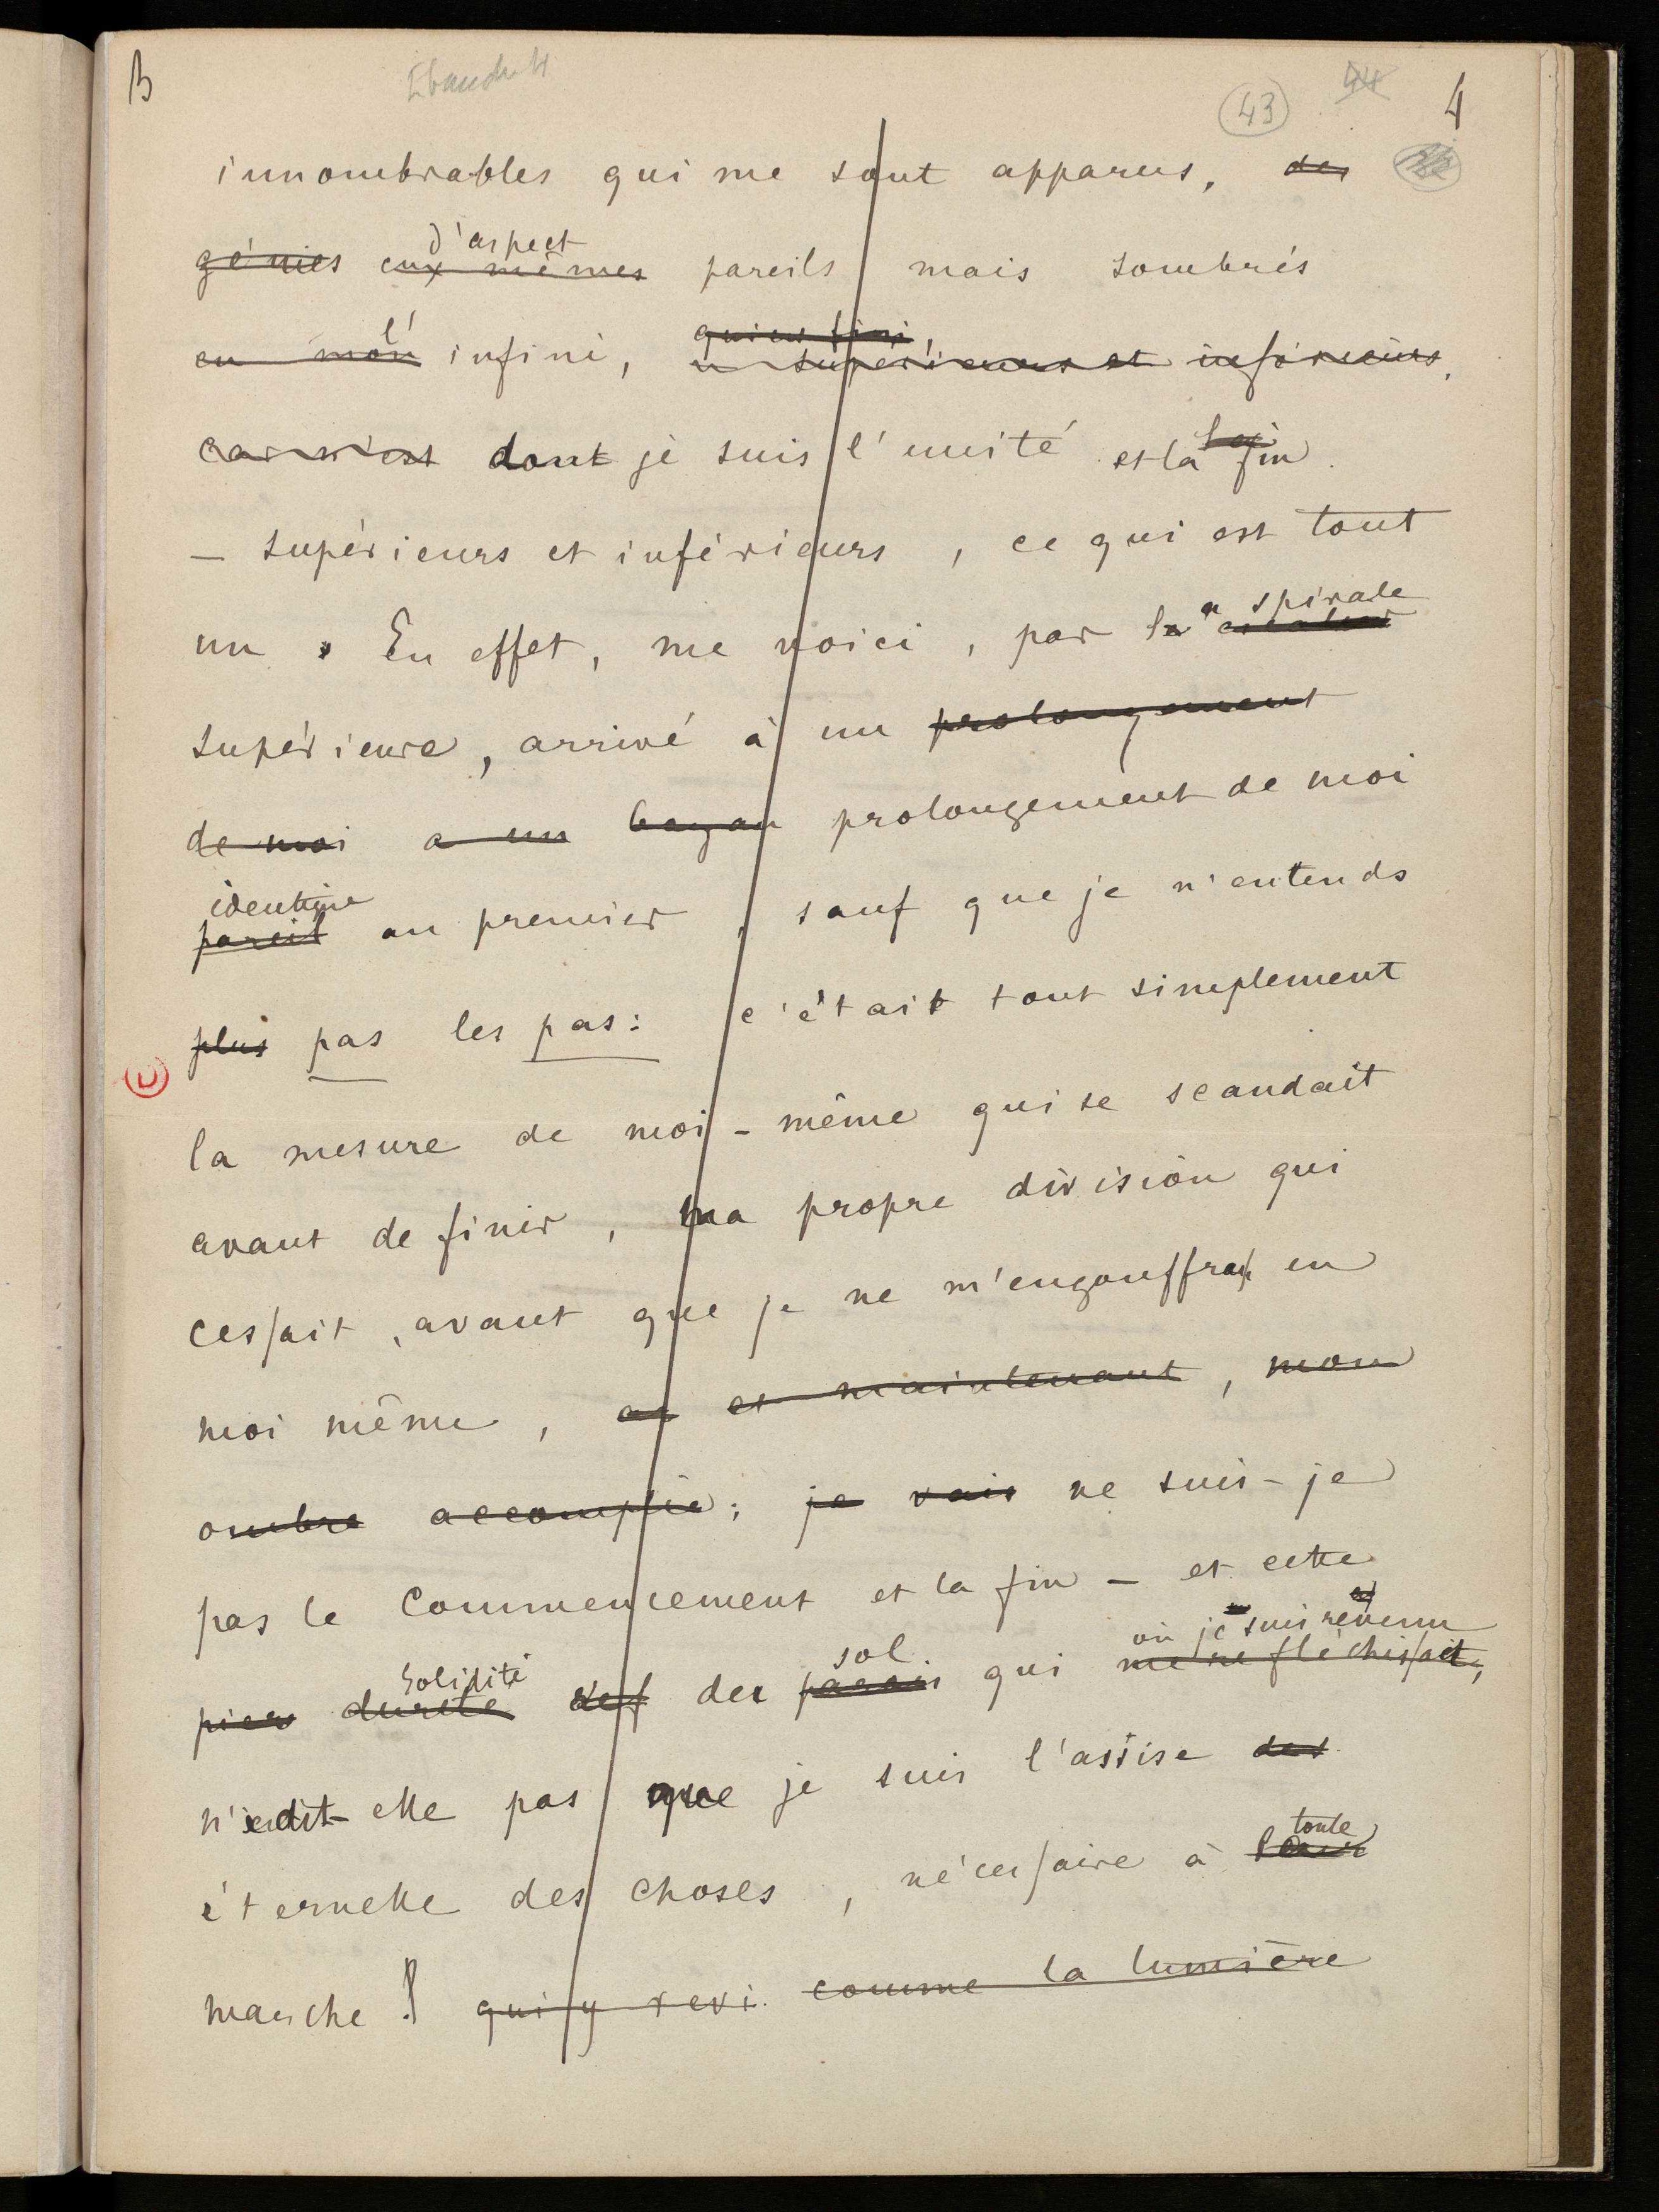 B
43
44
4
innombrables qui me sont apparus, des
d'aspect
génies eux mêmes pareils mais sombrés
l'
en mon infini,
supérieurs et inférieurs,
car n'est dont je suis l'unité et la fin.
– supérieurs et inférieurs, ce qui est tout
spirale
un. En effet, me voici, par la
supérieure, arrivé à un prolongement
de moi a un prolongement de moi
identique
pareil au premier, sauf que je n'entends
plus pas les pas: c'était tout simplement
U
la mesure de moi-même qui se scandait
avant de finir, ma propre division qui
cessait, avant que je ne m'engouffrasse en
moi même, et maintenant, mon
ombre accomplie; je vais ne suis-je
pas le commencement et la fin – et cette
où je suis revenu
solidité sol
dureté des parois qui me ne fléchissait,
n'est dit-elle pas que je suis l'assise des
toute
éternelle des choses, nécessaire à
marche! qui y revi. comme la lumière